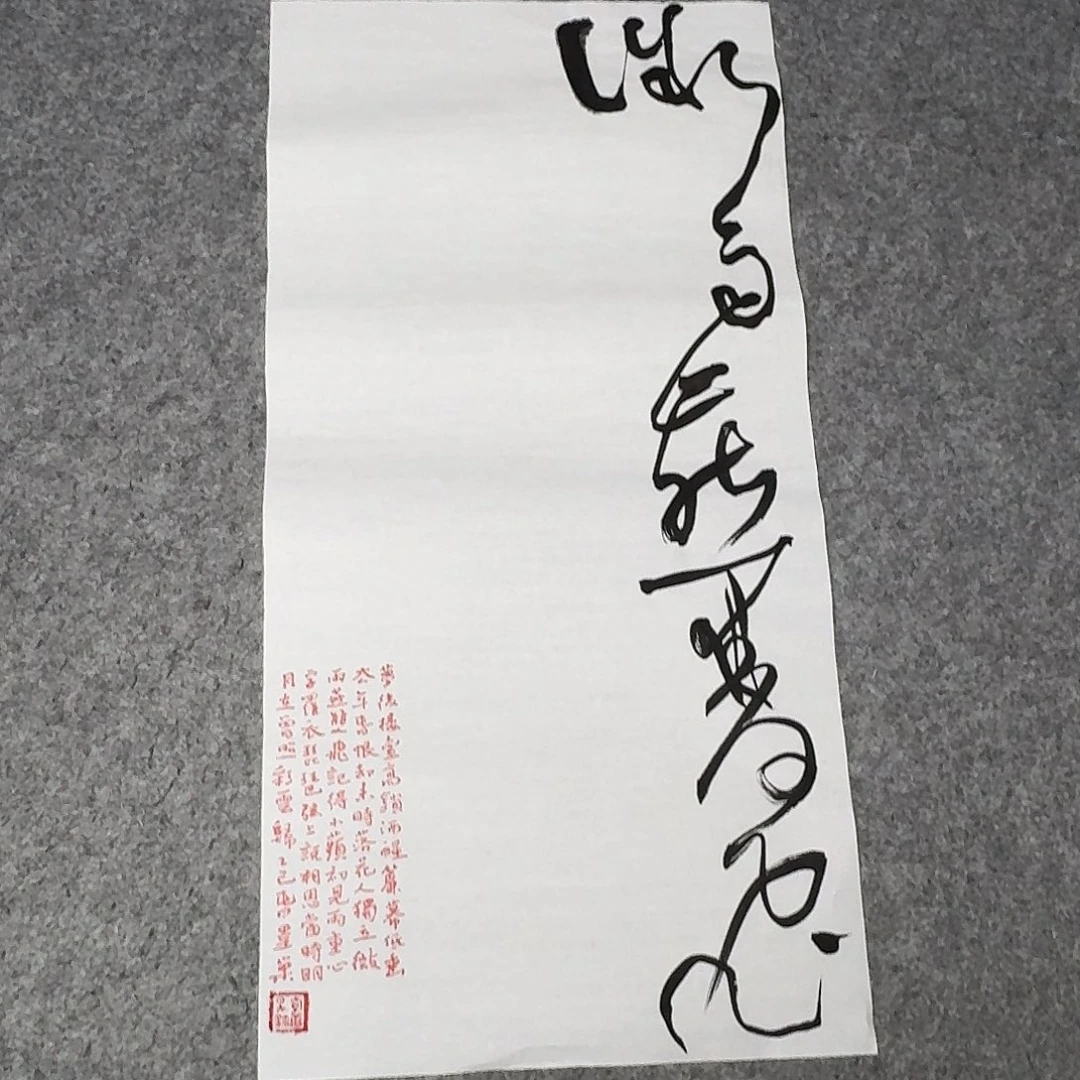 微雨燕双飞
夢後樓臺高鎖酒醒簾幕低垂
去年春恨却来時落花人獨立微
雨燕雙飛記得小蘋初見兩重心
字羅衣琵琶弦上說相思當時明
月在曾照彩雲歸乙巳